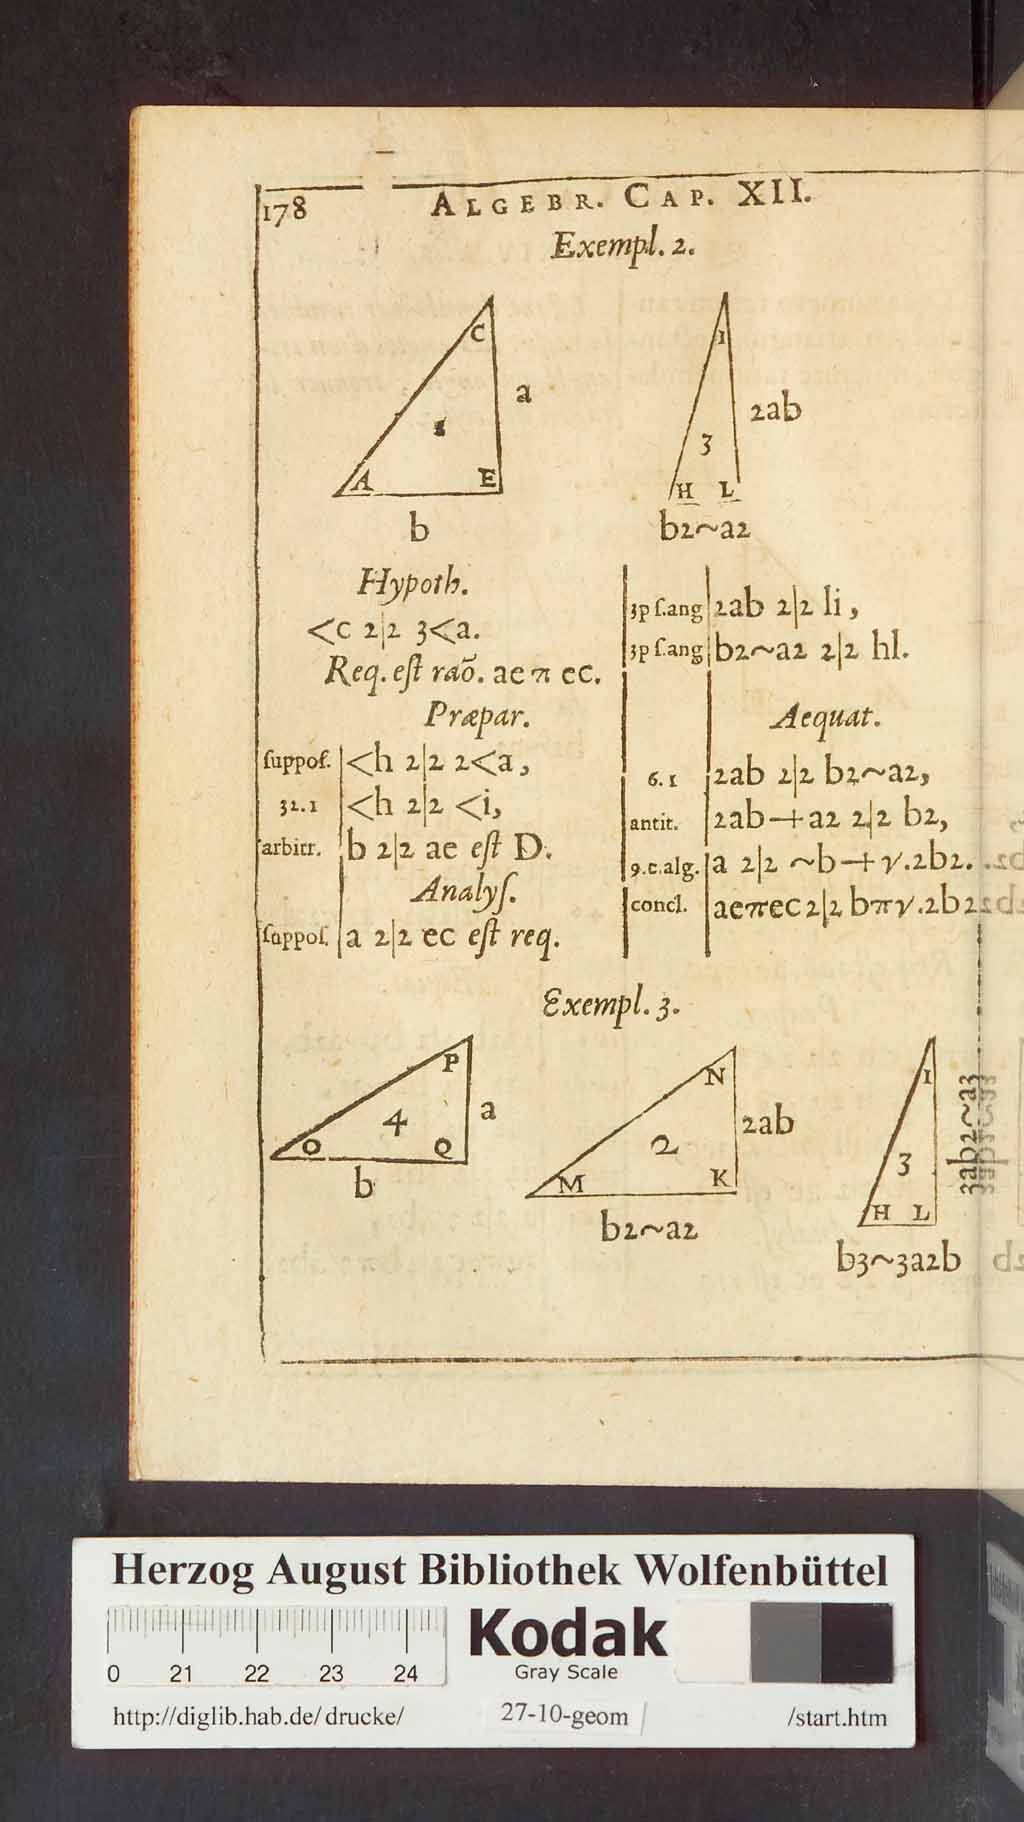 178 ALGEBR. CAP. XII.
Exempl. 2.
C
a
A E
b
I
2ab
3
H L
b2~a2
Hypoth.
<c 2|2 3<a.
Req. est raõ. ae π ec.
Præpar.
suppos. <h 2|2 2<a,
32.1 <h 2|2 <i,
arbitr. b 2|2 ae est D.
Analys.
suppos. a 2|2 ec est req.
3p s.ang 2ab 2|2 li,
3p s.ang b2~a2 2|2 hl.
Aequat.
6.1 2ab 2|2 b2~a2,
antit. 2ab+a2 2|2 b2,
9.c.alg. a 2|2 ~b+√.2b2.
concl. aeπec 2|2 bπ√.2b2
Exempl. 3.
P
4
a
O Q
b
N
2ab
2
M K
b2~a2
I
3
3ab2~a3
H L
b3~3a2b
Herzog August Bibliothek Wolfenbüttel
0 21 22 23 24
Kodak
Gray Scale
http://diglib.hab.de/drucke/ 27-10-geom /start.htm